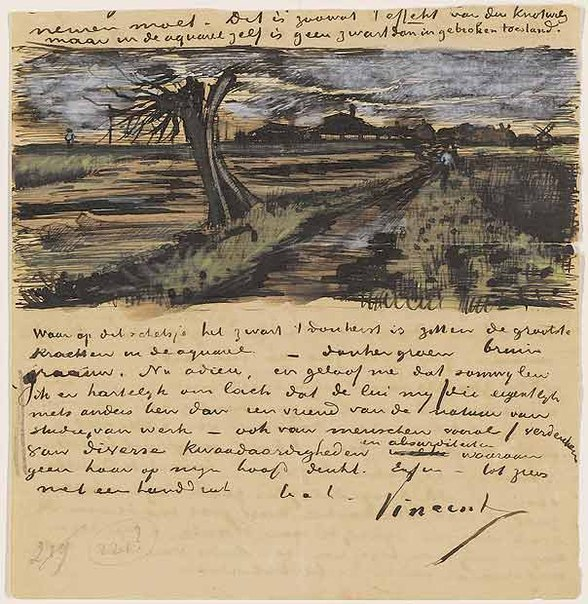 nemen moet. Dit is zoowat 't effekt van den Knotwilg
maar in de aquarel zelf is geen zwart dan in gebroken toestand.
Waar op dit schetsje het zwart 't donkerst is zitten de grootste
krachten in de aquarel – donkergroen bruin
graauw. Nu adieu, en geloof me dat somwylen
ik er hartelyk om lach dat de lui my / die eigentlyk
niets anders ben dan een vriend van de / natuur van
studie, van werk – ook van menschen vooral / verdenken
van diverse kwaadaardigheden en absurditeiten waaraan
geen haar op myn hoofd denkt. Enfin – tot ziens
met een handdruk t. à t.
Vincent